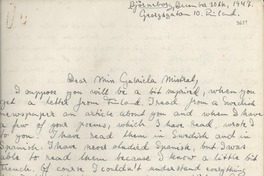 Björneborg, December 20th, 1947.
Finland.
Dear Miss Gabriela Mistral,
I suppose you will be a bit surprised, when you
get a letter from Finland. I read from a Swedish
newspaper an article about you and when I have
a few of your poems, which I have read, wrote I
to you. I have read them in Swedish and in
Spanish. I have never studied Spanish, but I was
able to read them because I know a little bit
French. Of course I couldn't understand everything